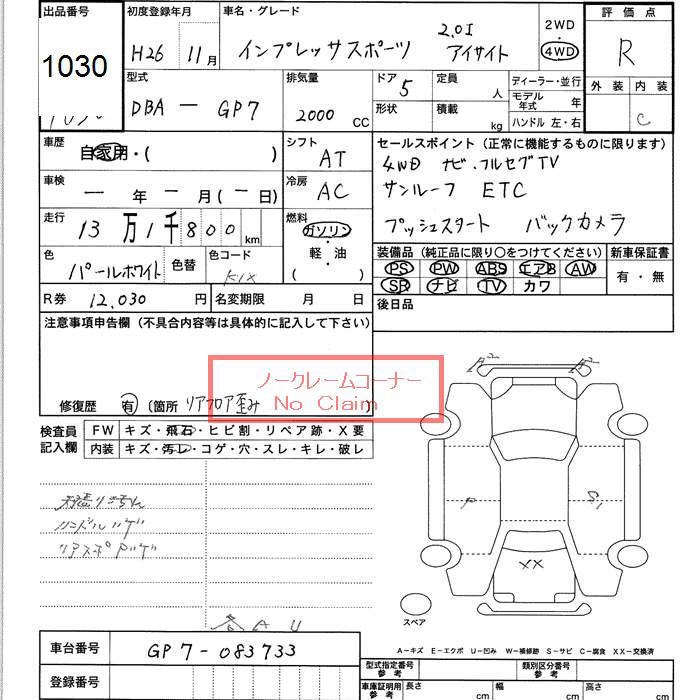 出品番号
1030
初度登録年月
H26 11月
車名・グレード
インプレッサスポーツ 2.0I アイサイト
2WD
・
4WD
評価点
R
外装 内装
C
型式
DBA ー GP7
排気量
2000 CC
ドア 5
形状
定員 人
積載 kg
ディーラー・並行
モデル年式 年
ハンドル 左・右
車歴
自家用・( )
シフト
AT
車検
ー 年 ー 月(ー日)
冷房
AC
走行
13万1千800 km
燃料
ガソリン
・
軽油
( )
色
パールホワイト
色替
色コード
K1X
R券 12,030 円
名変期限 月 日
セールスポイント(正常に機能するものに限ります)
4WD ナビ・フルセグTV
サンルーフ ETC
プッシュスタート バックカメラ
装備品(純正品に限り○をつけてください)
新車保証書
PS PW ABS エアB AW
SR ナビ TV カワ
有・無
後日品
注意事項申告欄(不具合内容等は具体的に記入して下さい)
ノークレームコーナー
No Claim
修復歴 有 (箇所 リアフロア歪み )
検査員
記入欄
FW キズ・飛石・ヒビ割・リペア跡・X要
内装 キズ・汚レ・コゲ・穴・スレ・キレ・破レ
ハンドルハゲ
各 A U
P
S1
XX
スペア
A−キズ E−エクボ U−凹み W−補修跡 S−サビ C−腐食 XX−交換済
車台番号
GP7-083733
登録番号
型式指定番号
参考
類別区分番号
参考
車庫証明用
参考
長さ cm
幅 cm
高さ cm